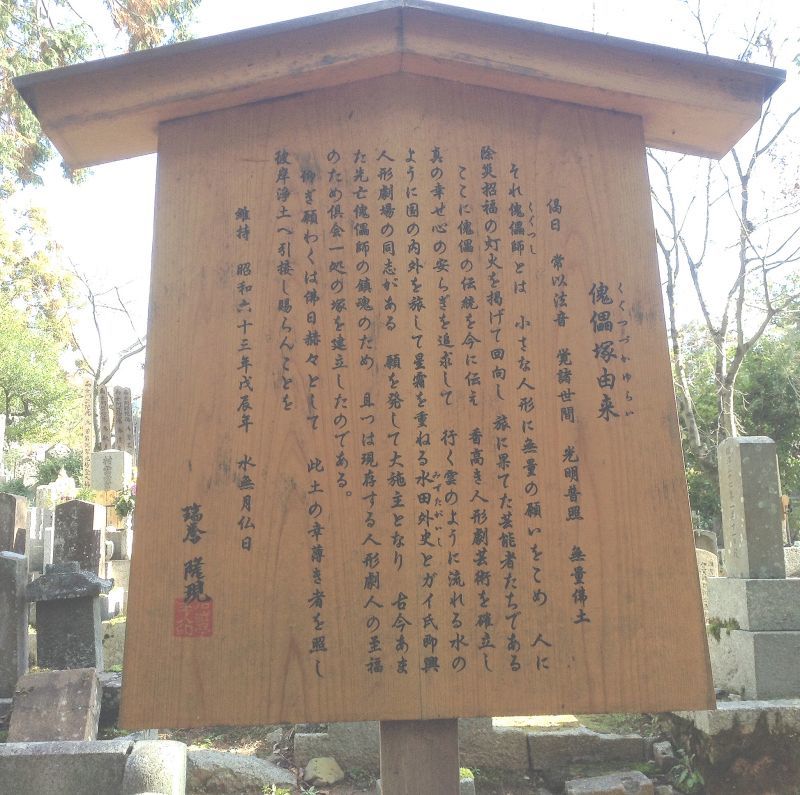 くぐつづかゆらい
傀儡塚由来
偈曰　常以法音　覚諸世間　光明普照　無量佛土
くぐつし
それ傀儡師とは　小さな人形に無量の願いをこめ　人に
除災招福の灯火を掲げて回向し　旅に果てた芸能者たちである
ここに傀儡の伝統を今に伝え　香高き人形劇芸術を確立し
真の幸せ心の安らぎを追求して　行く雲のように流れる水の
みずたがいし
ように国の内外を旅して星霜を重ねる水田外史とガイ氏即興
人形劇場の同志がある　願を発して大施主となり　古今あま
た先亡傀儡師の鎮魂のため　且つは現存する人形劇人の至福
のため倶会一処の塚を建立したのである。
仰ぎ願わくは佛日赫々として　此土の幸薄き者を照し
彼岸浄土へ引接し賜らんことを
維持　昭和六十三年戊辰年　水無月仏日
瑞誉　隆現